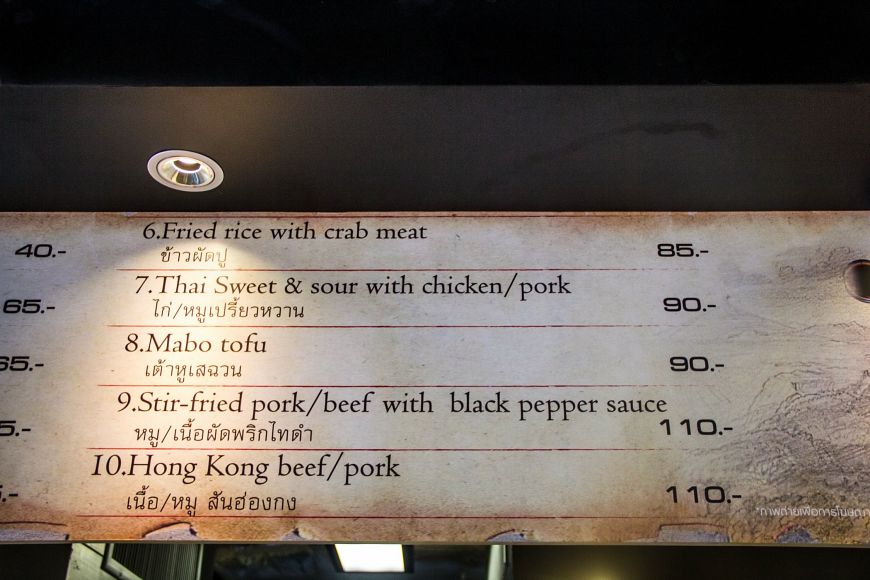 6.Fried rice with crab meat
ข้าวผัดปู
40.-
85.-
7.Thai Sweet & sour with chicken/pork
ไก่/หมูเปรี้ยวหวาน
65.-
90.-
8.Mabo tofu
เต้าหูเสฉวน
65.-
90.-
9.Stir-fried pork/beef with black pepper sauce
หมู/เนื้อผัดพริกไทดำ
5.-
110.-
10.Hong Kong beef/pork
เนื้อ/หมู สันฮ่องกง
.-
110.-
*ภาพถ่ายเพื่อการโฆษณา